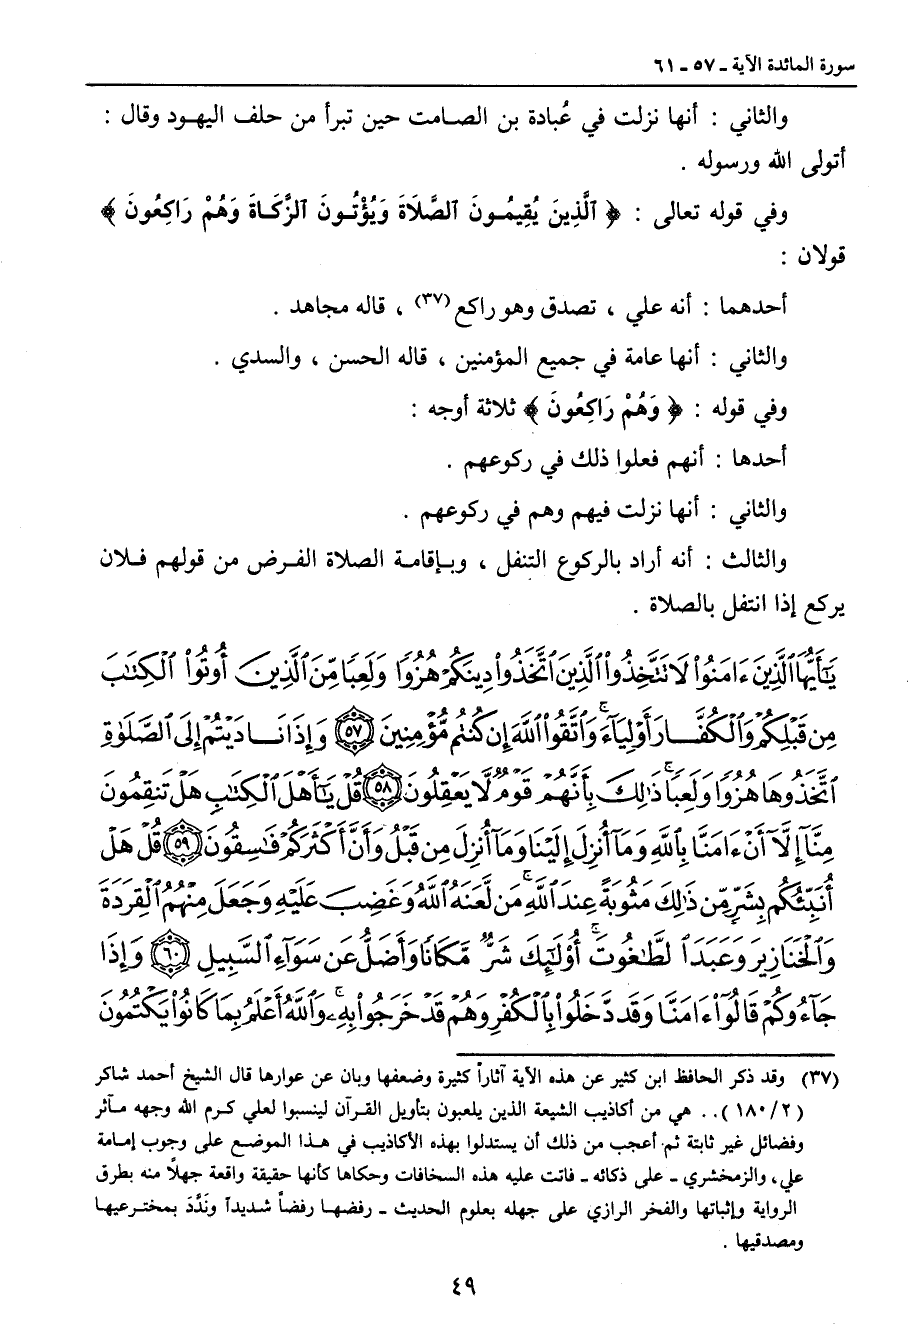 سورة المائدة الآية ـ ٥٧ ـ ٦١
والثاني : أنها نزلت في عُبادة بن الصامت حين تبرأ من حلف اليهود وقال :
أتولى الله ورسوله .
وفي قوله تعالى : ﴿ ٱلَّذِينَ يُقِيمُونَ ٱلصَّلَاةَ وَيُؤْتُونَ ٱلزَّكَاةَ وَهُمْ رَاكِعُونَ ﴾
قولان :
أحدهما : أنه علي ، تصدق وهو راكع (٣٧) ، قاله مجاهد .
والثاني : أنها عامة في جميع المؤمنين ، قاله الحسن ، والسدي .
وفي قوله : ﴿ وَهُمْ رَاكِعُونَ ﴾ ثلاثة أوجه :
أحدها : أنهم فعلوا ذلك في ركوعهم .
والثاني : أنها نزلت فيهم وهم في ركوعهم .
والثالث : أنه أراد بالركوع التنفل ، وبإقامة الصلاة الفرض من قولهم فلان
يركع إذا انتفل بالصلاة .
يَٰٓأَيُّهَا ٱلَّذِينَ ءَامَنُوا۟ لَا تَتَّخِذُوا۟ ٱلَّذِينَ ٱتَّخَذُوا۟ دِينَكُمْ هُزُوًا وَلَعِبًا مِّنَ ٱلَّذِينَ أُوتُوا۟ ٱلْكِتَٰبَ
مِن قَبْلِكُمْ وَٱلْكُفَّارَ أَوْلِيَآءَ ۚ وَٱتَّقُوا۟ ٱللَّهَ إِن كُنتُم مُّؤْمِنِينَ ٥٧ وَإِذَا نَادَيْتُمْ إِلَى ٱلصَّلَوٰةِ
ٱتَّخَذُوهَا هُزُوًا وَلَعِبًا ۚ ذَٰلِكَ بِأَنَّهُمْ قَوْمٌ لَّا يَعْقِلُونَ ٥٨ قُلْ يَٰٓأَهْلَ ٱلْكِتَٰبِ هَلْ تَنقِمُونَ
مِنَّآ إِلَّآ أَنْ ءَامَنَّا بِٱللَّهِ وَمَآ أُنزِلَ إِلَيْنَا وَمَآ أُنزِلَ مِن قَبْلُ وَأَنَّ أَكْثَرَكُمْ فَٰسِقُونَ ٥٩ قُلْ هَلْ
أُنَبِّئُكُم بِشَرٍّ مِّن ذَٰلِكَ مَثُوبَةً عِندَ ٱللَّهِ ۚ مَن لَّعَنَهُ ٱللَّهُ وَغَضِبَ عَلَيْهِ وَجَعَلَ مِنْهُمُ ٱلْقِرَدَةَ
وَٱلْخَنَازِيرَ وَعَبَدَ ٱلطَّٰغُوتَ ۚ أُو۟لَٰٓئِكَ شَرٌّ مَّكَانًا وَأَضَلُّ عَن سَوَآءِ ٱلسَّبِيلِ ٦٠ وَإِذَا
جَآءُوكُمْ قَالُوٓا۟ ءَامَنَّا وَقَد دَّخَلُوا۟ بِٱلْكُفْرِ وَهُمْ قَدْ خَرَجُوا۟ بِهِۦ ۚ وَٱللَّهُ أَعْلَمُ بِمَا كَانُوا۟ يَكْتُمُونَ
(٣٧) وقد ذكر الحافظ ابن كثير عن هذه الآية آثاراً كثيرة وضعفها وبان عن عوارها قال الشيخ أحمد شاكر
(٢/١٨٠) . . هي من أكاذيب الشيعة الذين يلعبون بتأويل القرآن لينسبوا لعلي كرم الله وجهه مآثر
وفضائل غير ثابتة ثم أعجب من ذلك أن يستدلوا بهذه الأكاذيب في هذا الموضع على وجوب إمامة
علي، والزمخشري ـ على ذكائه ـ فاتت عليه هذه السخافات وحكاها كأنها حقيقة واقعة جهلاً منه بطرق
الرواية وإثباتها والفخر الرازي على جهله بعلوم الحديث ـ رفضها رفضاً شديداً ونَدَّدَ بمخترعيها
ومصدقيها .
٤٩